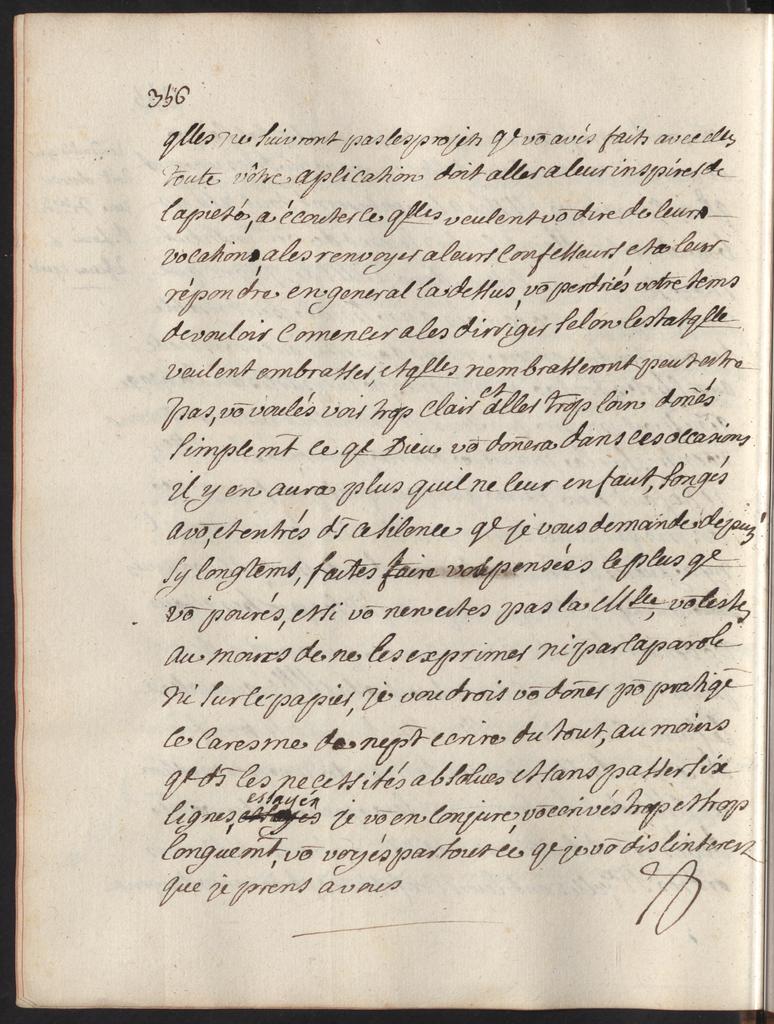 356
qlles ne suivront pas les projets qe vō avés faits avec elles
toute vôtre aplication doit aller a leur inspirer de
la pieté, a écouter ce qlles veulent vō dire de leurs
vocations a les renvoyer a leurs confesseurs et a leur
répondre en general la dessus, vō perdriés votre tems
de vouloir comencer a les diriger selon lestat qlle
veulent embrasser, et qlles nembrasseront peut estre
pas, vō voulés voir trop clair et aller trop loin donés
simplemt ce qe Dieu vō donera dans ces occasions
il y en aura plus quil ne leur en faut, songés
a vō, et entrés ds ce silence qe je vous demande depuis
sy longtems, faites faire vos pensées le plus qe
vō pourés, et si vō nen estes pas la Mse, vō lestes
au moins de ne les exprimer ni par la parole
ni sur le papier, je voudrois vō doner po pratiqe
ce caresme de nept ecrire du tout, au moins
qe ds les necessités absolues et sans passer six
lignes, essayés je vō en conjure vō ecrivés trop et trop
longuemt, vō voyés par tout ce qe je vō dis linterest
que je prens a vous